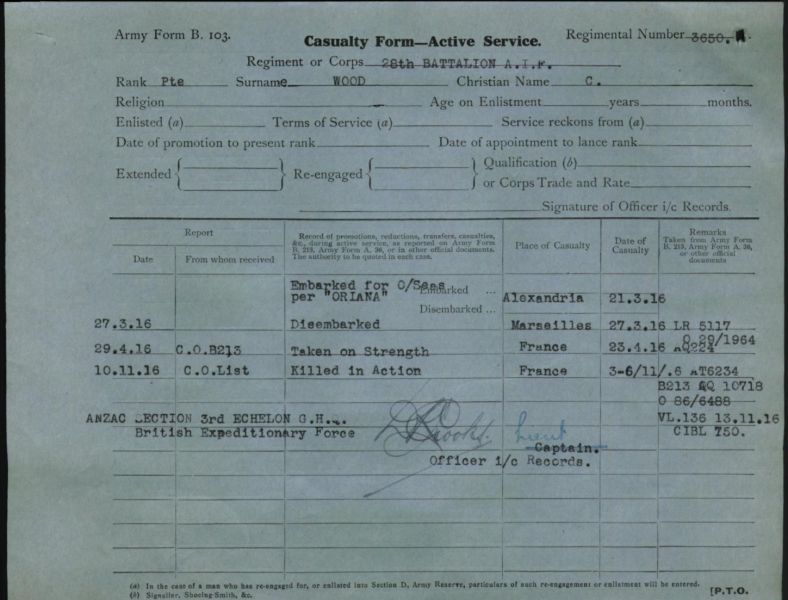 Army Form B. 103.
Casualty Form—Active Service.
Regimental Number 3650. A
Regiment or Corps 28th BATTALION A.I.F.
Rank Pte Surname WOOD Christian Name C.
Religion Age on Enlistment years months.
Enlisted (a) Terms of Service (a) Service reckons from (a)
Date of promotion to present rank Date of appointment to lance rank
Extended Re-engaged Qualification (b)
or Corps Trade and Rate
Signature of Officer i/c Records.
Report
Date From whom received
Record of promotions, reductions, transfers, casualties, &c., during active service, as reported on Army Form B. 213, Army Form A. 36, or in other official documents. The authority to be quoted in each case.
Place of Casualty
Date of Casualty
Remarks
Taken from Army Form B. 213, Army Form A. 36, or other official documents
Embarked for O/Seas Embarked ...
per "ORIANA" Alexandria 21.3.16
Disembarked ...
27.3.16 Disembarked Marseilles 27.3.16 LR 5117
O 29/1964
29.4.16 C.O.B213 Taken on Strength France 23.4.16 AQ224
10.11.16 C.O.List Killed in Action France 3-6/11/.6 AT6234
B213 AQ 10718
O 86/6488
ANZAC SECTION 3rd ECHELON G.H.Q. VL.136 13.11.16
British Expeditionary Force Lieut CIBL 750.
Captain.
Officer i/c Records.
(a) In the case of a man who has re-engaged for, or enlisted into Section D, Army Reserve, particulars of such re-engagement or enlistment will be entered.
(b) Signaller, Shoeing-Smith, &c.
[P.T.O.